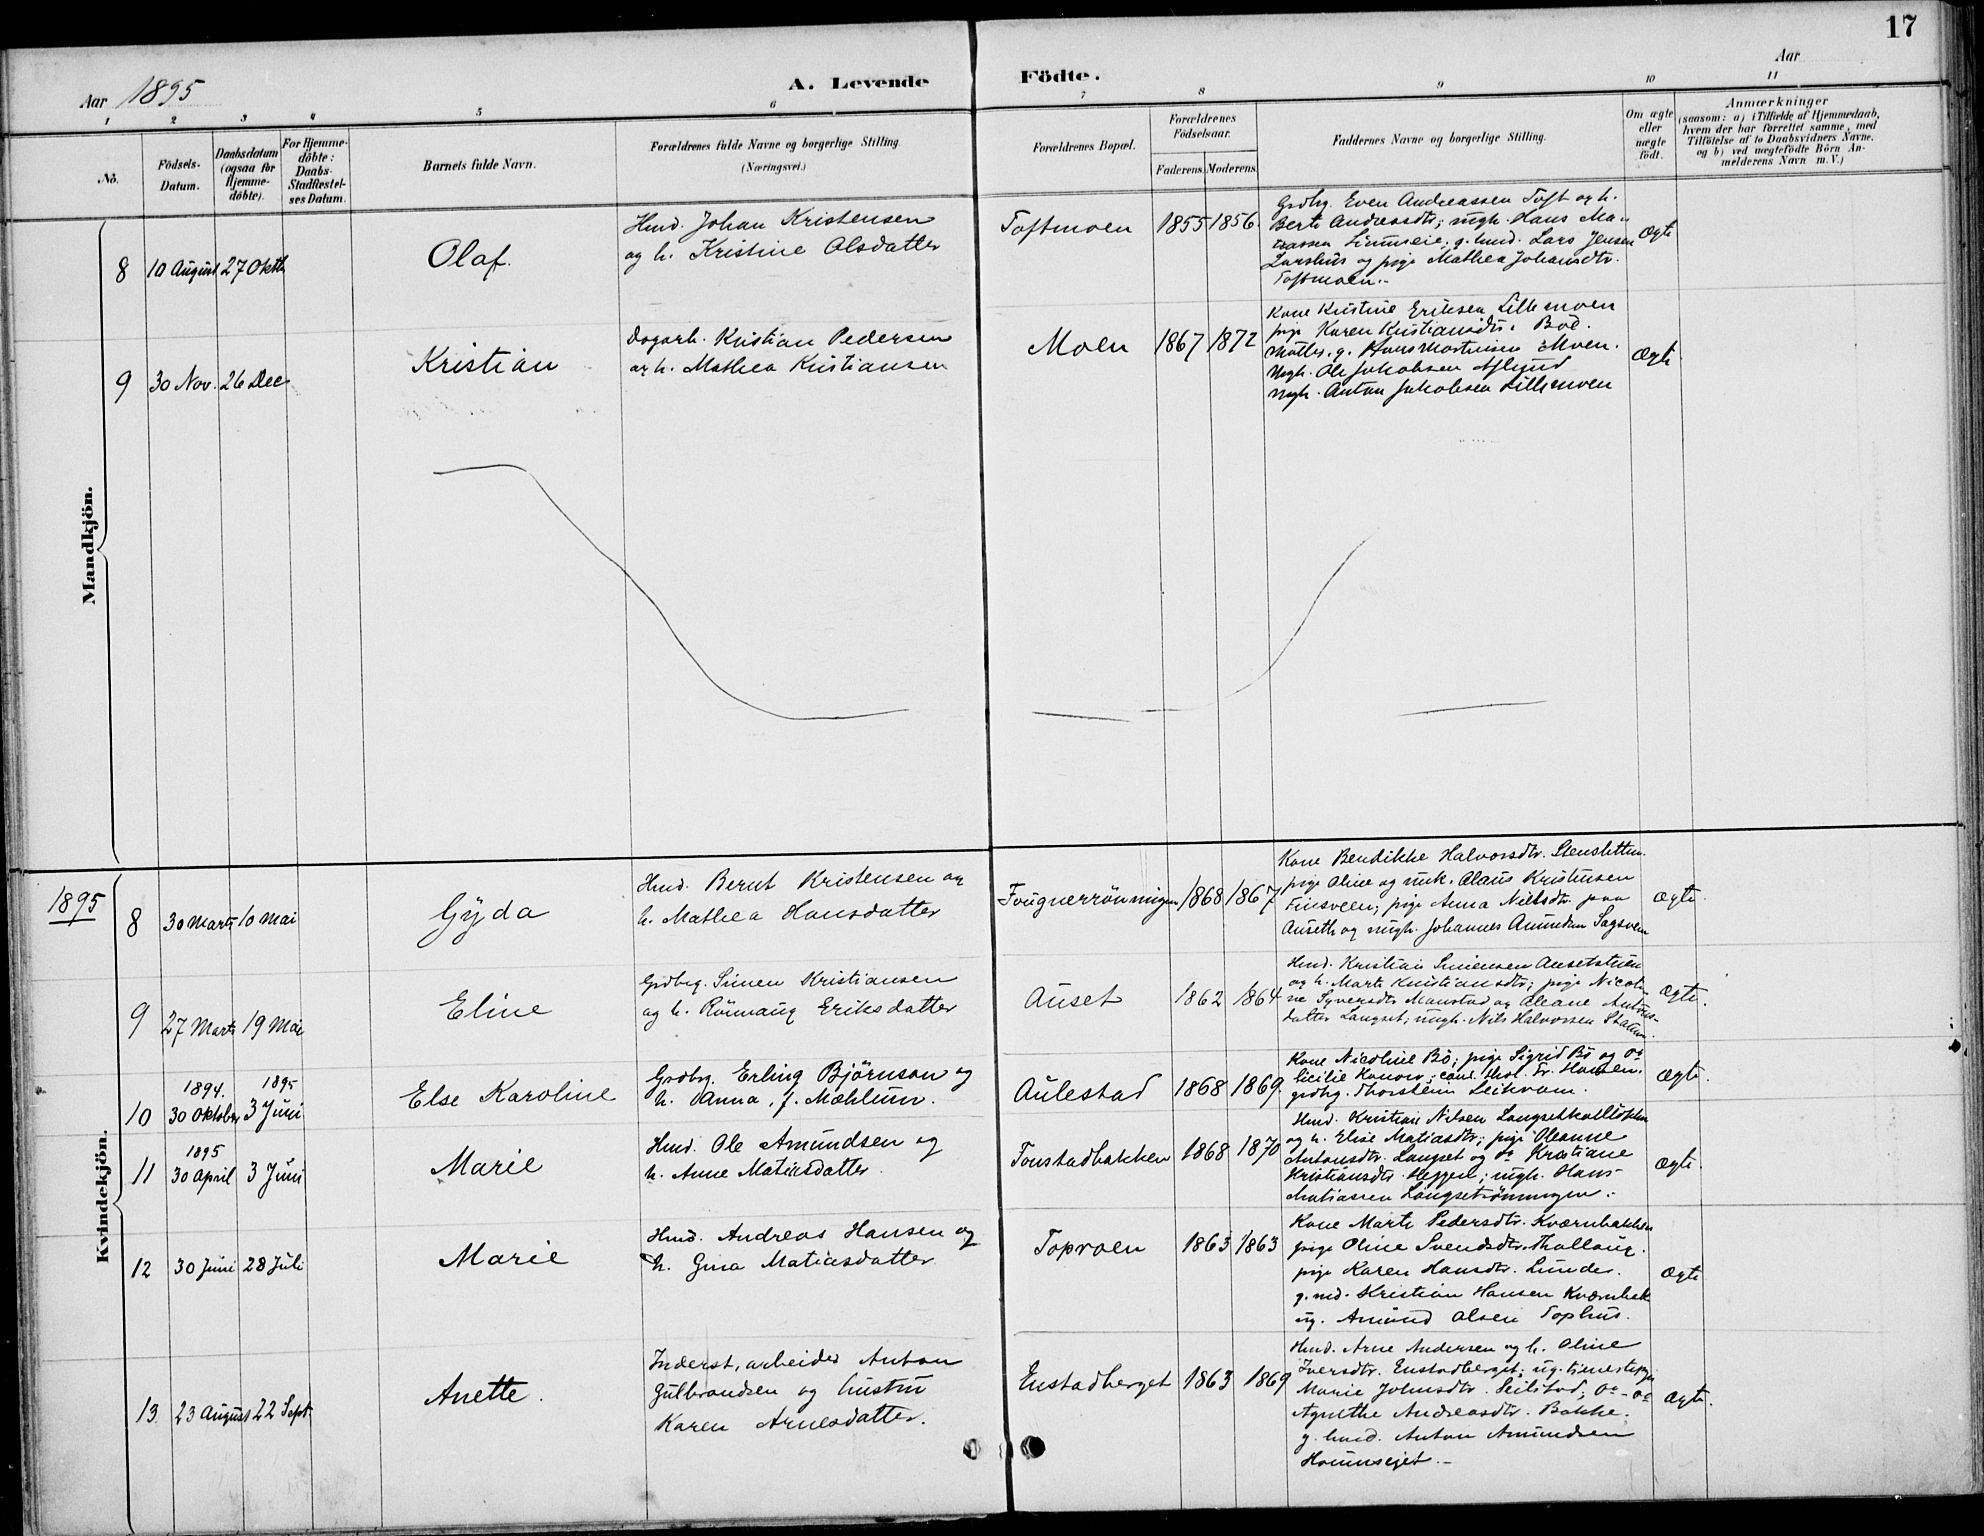 17
Aar 1895
A. Levende
Födte.
Aar
1 2 3 4 5 6 7 8 9 10 11
No.
Födsels-
Datum.
Daabsdatum
(ogsaa for
Hjemme-
döbte).
For Hjemme-
döbte:
Daabs-
Stadfæstel-
ses Datum.
Barnets fulde Navn.
Forældrenes fulde Navne og borgerlige Stilling
(Næringsvei.)
Forældrenes Bopæl.
Forældrenes
Födselsaar.
Faderens. Moderens.
Faddernes Navne og borgerlige Stilling.
Om ægte
eller
uægte
födt.
Anmærkninger
(saasom: a) i Tilfælde af Hjemmedaab,
hvem der har forrettet samme, med
Tilföielse af to Daabsvidners Navne.
og b) ved uægtefödte Börn An-
melderens Navn m. V.)
Mandkjön.
8 10 August 27 Oktb
Olaf.
Hmd. Johan Kristensen
og h. Kristine Olsdatter
Toftmoen 1855 1856.
Grdbrg. Even Andreassen Toft og h.
Berte Andreasdtr; ungk. Hans Ma-
g. hmd. Lars Jensen
Larshus og pige Mathea Johansdtr.
Toftmoen.-
Ægte
9 30 Nov. 26 Dec
Kristian
Dagarb. Kristian Pedersen
og h. Mathea Kristiansen
Moen 1867 1872
Kone Kristine Eriksen Lillemoen
pige Karen Kristiansdtr. Bøe.
g. Hans Mortensen Moen.
Ungk. Ole Jakobsen
Ungk. Anton Jakobsen Lillemoen
Ægte
1895
Kvindekjön.
8 30 Marts 10 Mai
Gyda
Hmd. Bernt Kristensen og
h. Mathea Hansdatter
Fougnerrönningen 1868 1867
Kone Bendikke Halvorsdtr. Stensletten.
pige Oline og unk. Claus Kristensen
Finsveen; pige Anna Nielsdtr. paa
Auseth og ungk. Johannes Amundsen Sagsveen
Ægte.
9 27 Marts 19 Mai
Eline
Grdbrg. Simen Kristiansen
og h. Rönnaug Eriksdatter
Auset 1862 1864
Hmd. Kristian Simensen Ausetstuen
og h. Marte Kristiansdtr; pige Nicoli-
ne Syversdtr Maustad og Oleane Antons-
datter Langset; ungk. Nils Halvorsen
Ægte.
1894. 1895
10 30 Oktober 3 Juni
Else Karoline
Grdbrg. Erling Björnson og
h. Anna, f. Mæhlum.
Aulestad 1868 1869.
Kone Nicoline Bö; pige Sigrid Bö og do
Cecilie Kanow; cand. theol. Fr. Hansen.
grdbrg. Thorstein Seikvam.
Ægte.
1895
11 30 April 3 Juni
Marie
Hmd. Ole Amundsen og
h. Anne Matiasdatter.
Tonstadbakken 1868 1870
Hmd. Kristian Nilsen
og h. Elise Matiasdtr; pige Oleanne
Antonsdtr. Langset og do Kristiane
Kristiansdtr. Heggen; ungk. Hans
Matiassen Langsetrönningen.-
Ægte.
12 30 Juni 28 Juli
Marie
Hmd. Andreas Hansen og
h. Gina Matiasdatter
Toproen 1863 1863
Kone Marte Pedersdtr. Kværnbakken
pige Oline Svendsdtr. Thallaug.
pige Karen Hansdtr. Lunde.
g. md. Kristian Hansen Kværnbak
ug. Amund Olsen Tophus.
Ægte
13. 23 August 22 Sept.
Anette.
Inderst, arbeider Anton
Gulbrandsen og hustru
Karen Arnesdatter.
Enstadberget 1863 1869
Hmd. Arne Andersen og h. Oline
Iversdtr. Enstadberget; ug. tjenestepige
Marie Johnsdtr. Seilstad; do - do
Agnethe Andreasdtr. Bakke.
g. hmd. Anton Amundsen
Ægte.